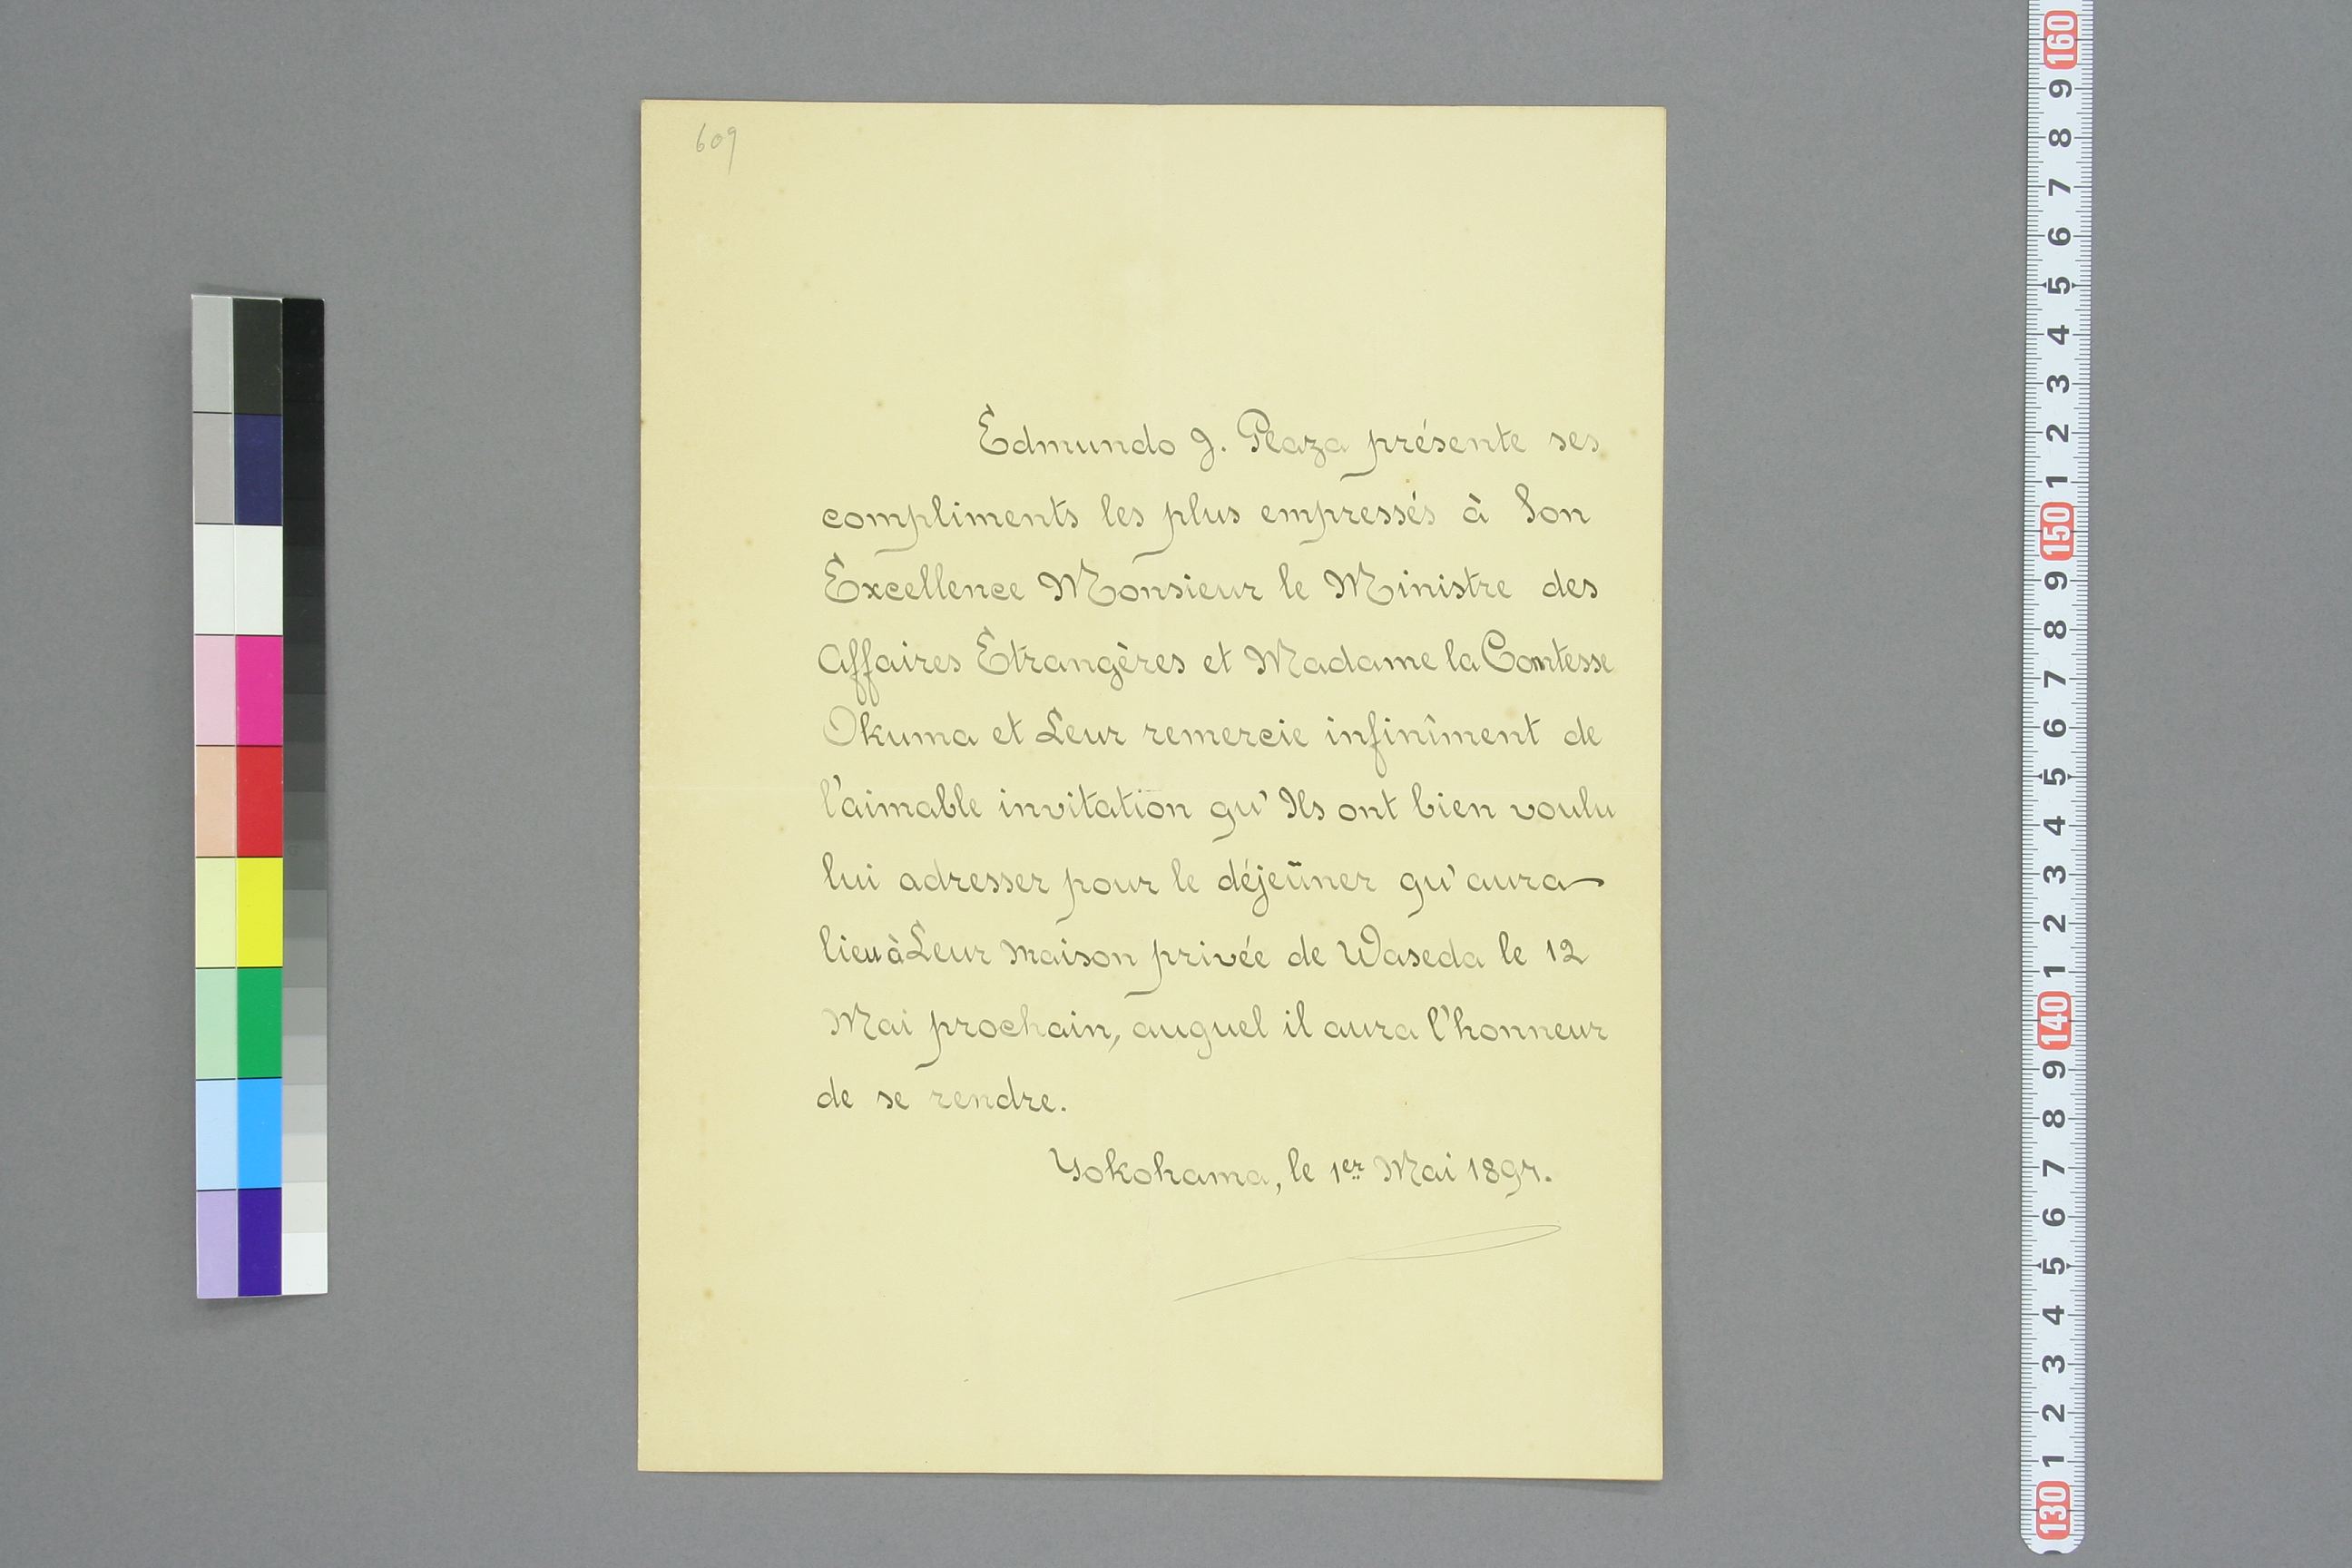 609
Edmundo J. Plaza présente ses
compliments les plus empressés à Son
Excellence Monsieur le Ministre des
Affaires Etrangères et Madame la Comtesse
Okuma et Leur remercie infiniment de
l'aimable invitation qu'Ils ont bien voulu
lui adresser pour le déjeûner qu'aura
lieu à Leur maison privée de Waseda le 12
Mai prochain, auquel il aura l'honneur
de se rendre.
Yokohama, le 1er Mai 1897.
160
9
8
7
6
5
4
3
2
1
150
9
8
7
6
5
4
3
2
1
140
9
8
7
6
5
4
3
2
1
130